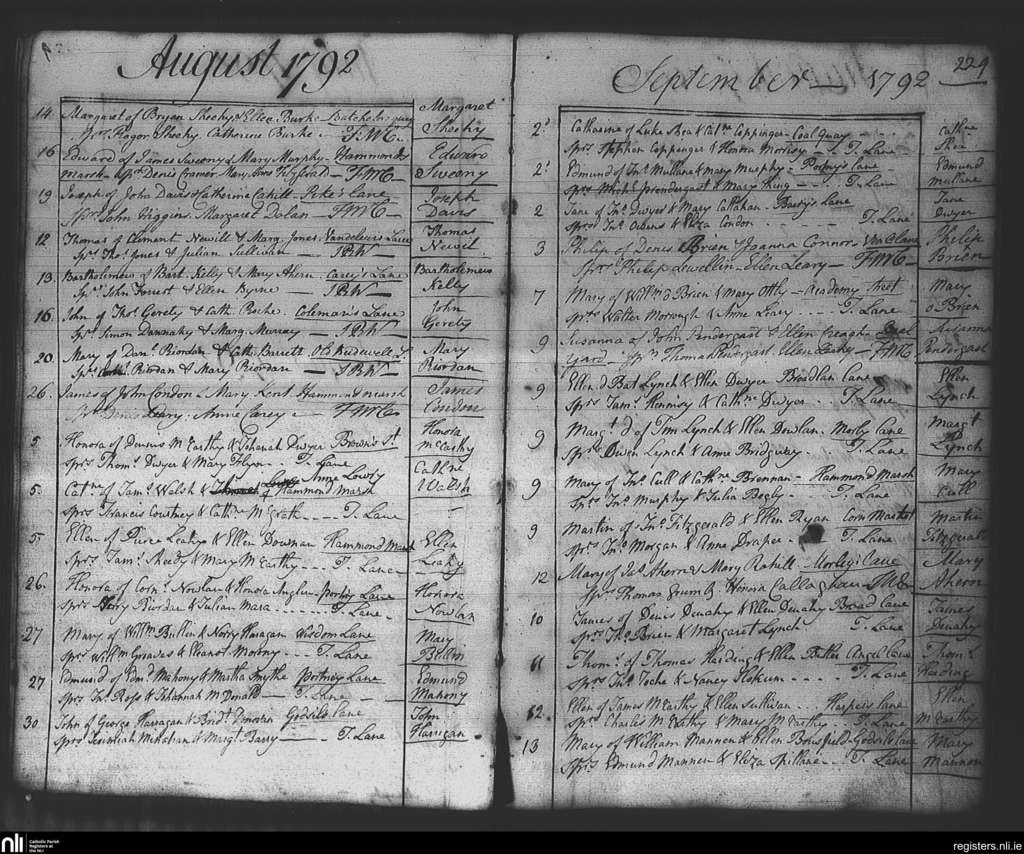 August 1792
14 Margaret of Bryan Sheehy & Ellen Burke Batchelors quay Margaret
Sprs Roger Sheehy, Catherine Burke - F.M.C. Sheehy
16 Edward of James Sweony & Mary Murphy - Hammonds Edward
Marsh - Denis Connor Mary Ann Fitzgerald - F.M.C - Sweony
19 Joseph of John Davis & Catherine Cahill - Pike's Lane Joseph
Sprs John Higgins Margaret Dolan - F.M.C - Davis
12 Thomas of Clement Newill & Marg. Jones - Vandeleurs Lane Thomas
Sprs Thos Jones & Julian Sullivan - J.B.W - Newil
13. Bartholemeus of Bart. Kelly & Mary Ahern - Carey's Lane Bartholemeus
Sprs John Forrest & Ellen Byrne - J.B.W - Kelly
16. John of Thos Gerety & Cath. Roche. Coleman's Lane John
Sprs Simon Dannahy & Marg. Murray - J.B.W Gerety
20. Mary of Danl Riordan & Cath. Barrett Mary
Sprs Riordan & Mary Riordan - J.B.W - Riordan
26. James of John Condon & Mary Kent Hammond marsh James
Sprs Denis Leary. Anne Carey - F.M.C Condon
5 Honora of Dennis McCarthy & Johanah Dwyer Brown's St Honora
Sprs Thoms Dwyer & Mary Flynn - T. Lane McCarthy
5. Cathne of Jams Walsh & Anne Lowry Cathne
of Hammond Marsh Walsh
Sprs Francis Courtney & Cathne McGrath - - - - T. Lane
5 Ellen of Pierce Leahy & Ellen Downan Hammond Marsh Ellen
Sprs Jams Sheedy & Mary McCarthy - T. Lane Leahy
26. Honora of Corns Nowlan & Honora Anglin - Portney Lane Honora
Sprs Riordan & Julian Mara - - - T. Lane. Nowlan
27 Mary of Willm Bullen & Norry Hanagan Wisdom Lane Mary
Sprs Willm Greaves & Eleanor Molony - - - T. Lane Bullin
27 Edmund of Edmd Mahony & Martha Smythe Portney Lane Edmund
Sprs Jno Ross & Johannah McDonald - T. Lane Mahony
30. John of George Hanagan & Bridt Godsils lane John
Sprs Jeremiah Minahan & Margt Barry - T. Lane Hanigan
September - 1792
229
2d Catharine of Luke Shea & Cathne Coppinger - Coal quay - Cathne
Sprs Stephen Coppinger & Honora Morissy - T. Lane Shea
2d Edmund of Jno Mullane & Mary Murphy - Lane Edmund
Sprs Michl Prendergast & Mary King - T. Lane Mullane
2 Jane of Jno Dwyer & Mary Callahan - Barry's Lane Jane
Sprs Owens & Eliza Condon T. Lane Dwyer
3 Philip of Denis Brien & Joanna Connors Philip
Sprs Philip Lewellin - Ellen Leary - F.M.C - Brien
7 Mary of Willm o Brien & Mary - Academy Street Mary
Sprs Walter Morrogh & Anne Leary . . - T. Lane o Brien
9 Susanna of John Pendergast & Ellen Creagh - Susanna
Yard - Sprs Thomas Ellen Leahy - F.M.C Pendergast
9 Ellen d Bat Lynch & Ellen Dwyer Broadlan Lane Ellen
Sprs Jams Hennisy & Cathne Dwyer. - T. Lane Lynch
9 Margt d of Tim Lynch & Ellen Dowlan. Morly Lane Margt
Sprs Owen Lynch & Anne Bridgway. T. Lane Lynch
9 Mary of Jno Cull & Cathne Brennan - Hammond Marsh Mary
Sprs Jno Murphy & Julia Begly - T. Lane Cull
9 Martin of Jno Fitzgerald & Ellen Ryan Corn Market Martin
Sprs Jno Morgan & Anne Draper - T. Lane Fitzgerald
12 Mary of Jas Ahern & Mary Morley's Lane Mary
Sprs Thomas Honora Callaghan Ahern
10 James of Denis Denahy & Ellen Denahy Broad Lane James
Sprs Thos Brien & Margaret Lynch. T. Lane Denahy
11 Thoms of Thomas Harding & Ellen Butler Angel Lane Thoms
Sprs Jno Roche & Nancy - - - T. Lane Harding
12. Ellen of James McCarthy & Ellen Sullivan. Harpers lane Ellen
Sprs Charles McCarthy & Mary McCarthy - T. Lane McCarthy
13 Mary of William Mannen & Ellen Bousfield - Godsils lane Mary
Sprs Edmund Mannen & Eliza Spillane - - T. Lane Mannon
nli
Catholic Parish
Registers at
the NLI
registers.nli.ie